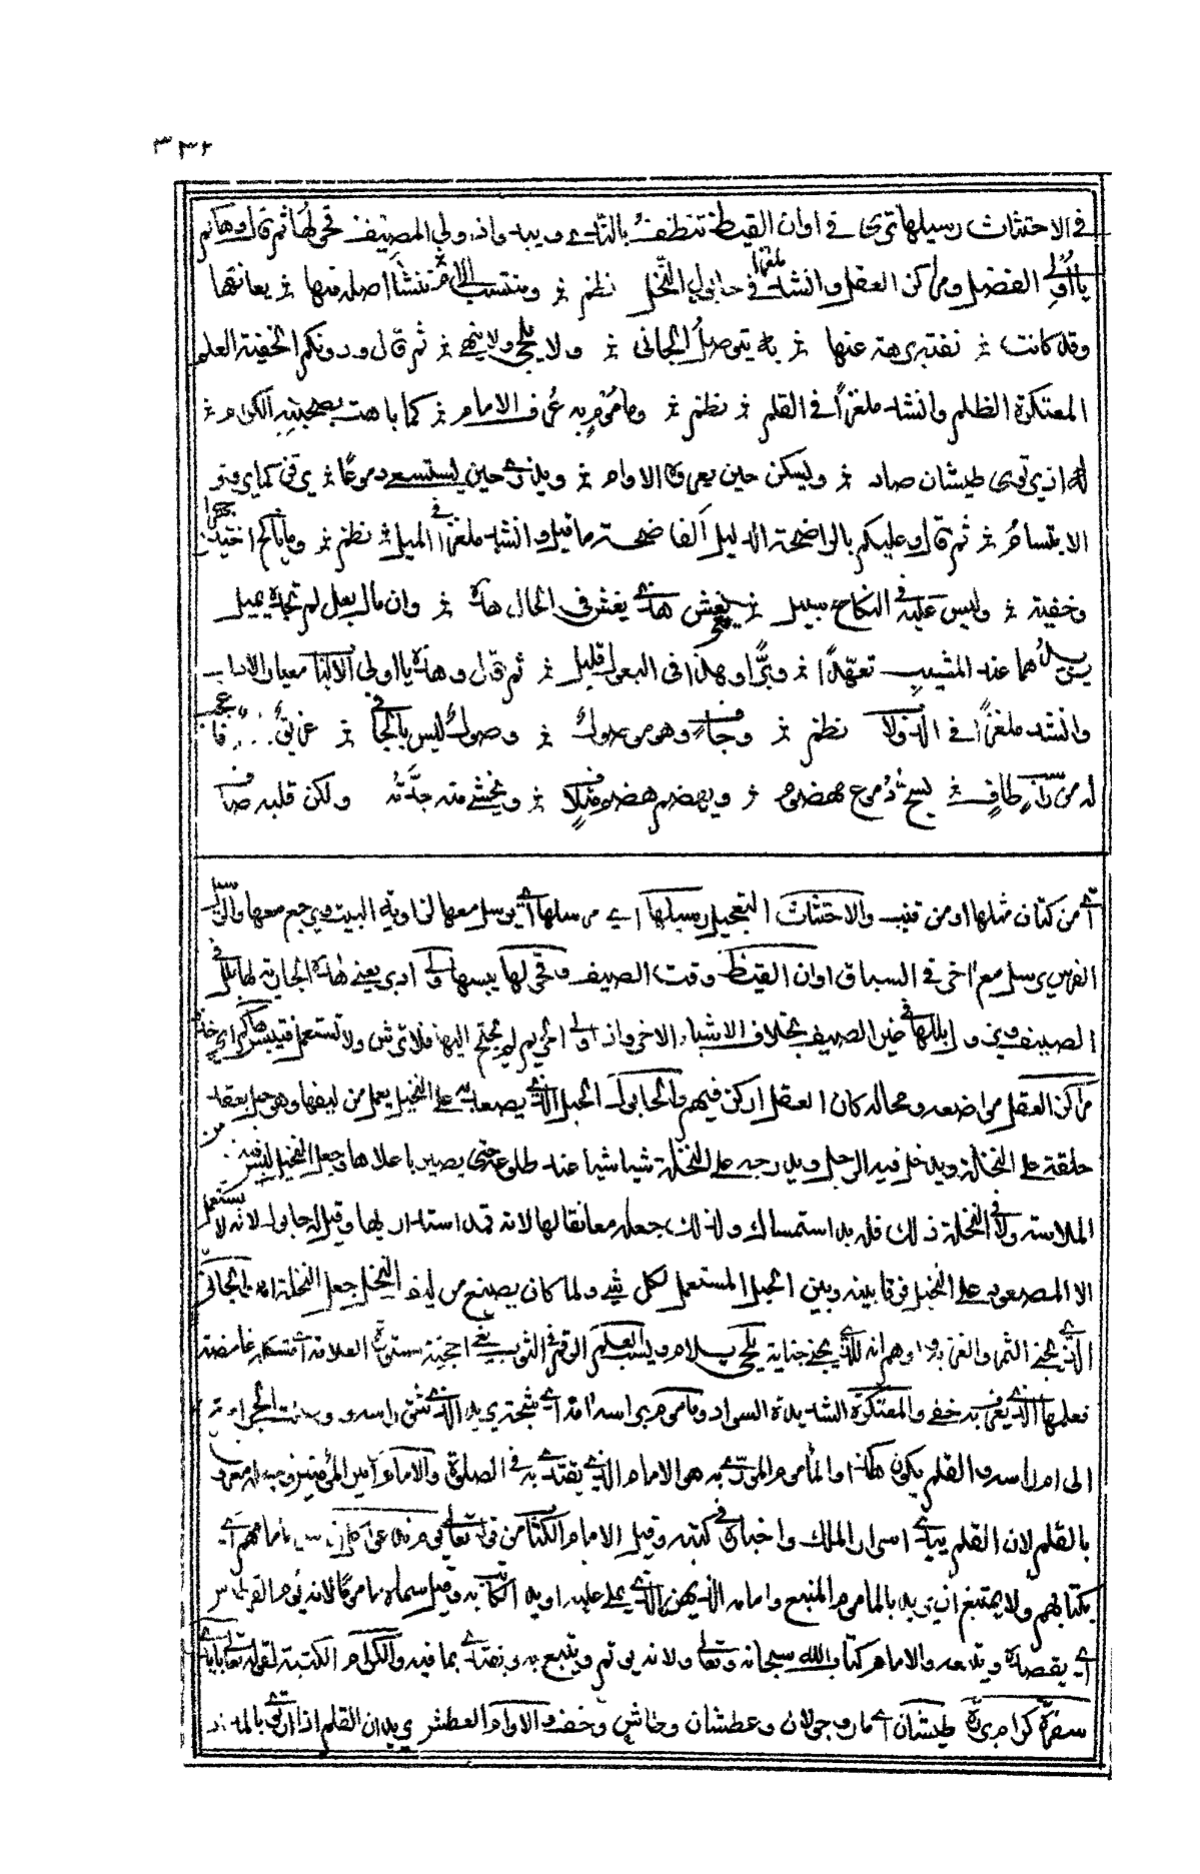 ٣٣٢
في الاحتثاث رسيلها ترى في اوان القيظ تنطف بالندى ويبدو اذا ولى المصيف قحولها ثم قال وهاكم
يا اولي الفضل ومراكز العقل وانشد ملغزا في حابول النخل نظم ومنتسب الى ام تنشا اصله منها يعانقها
وقد كانت نفته برهة عنها به يتوصل الجاني ولا يلحى ولا ينهى ثم قال ودونكم الخفية العلم
المعتكرة الظلم وانشد ملغزا في القلم نظم ومأموم به عرف الامام كما باهت بصحبته الكرام
له اذ يرتوي طيشان صاد ويسكن حين يعروه الاوام ويذري حين يستسعى دموعا يرقن كما يروق
الابتسام ثم قال وعليكم بالواضحة الدليل الفاضحة ما قيل وانشد ملغزا في الميل نظم وما ناكح اختين جهرا
وخفية وليس عليه في النكاح سبيل متى يغش هذي يغش في الحال هذه وان مال بعل لم تجده يميل
يزيدهما عند المشيب تعهدا وبرا وهذا في البعول قليل ثم قال وهذه يا اولي الالباب معيار الاداب
وانشد ملغزا في الدولاب نظم وجاف وهو موصول وصول ليس بالجافي غريق بارز فاعجب
له من راسب طاف يسح دموع مهضوم ويهضم هضم متلاف وتخشى منه حدته ولكن قلبه صاف
اي من كتان مثلها او من قنب والاحتثاث التعجيل رسيلها اي مرسلها اي يرسل معها لزاوية البيت ويرجع معها والرسيل
الفرس يرسل مع اخر في السباق اوان القيظ وقت الصيف وقحولها يبسها ولى ادبر يعني هذه الجارية لها بلل في
الصيف ويزول بللها في غير الصيف بخلاف الاشياء الاخر واذا ولى الحر لم يحتج اليها فلا ترش ولا تستعمل فتيبس هاكم اي خذوا
مراكز العقل مواضعه ومحاله كان العقل اركز فيهم والحابول الحبل الذي يصعد به على النخيل يعمل من ليفها وهو حبل يعقد
حلقة على النخلة ويدخل فيه الرجل ويدرجه على النخلة شيئا شيئا عند طلوعه حتى يصير باعلاها وجعل النخيل
الملامسة في النخلة ذلك فله به استمساك ولذلك جعله معانقا لها لانه قد استدار بها وقيل له حابول لانه لا يستعمل
الا المصعود على النخيل فرقا بينه وبين الحبل المستعمل لكل شيء ولما كان يصنع من ليف النخيل جعل النخلة امه الجاني
الذي يجني الثمر والغز به واوهم انه الذي يجني جناية يلحى يلام ويسب العلم الرقم في الثوب يعني اجنية مستورة العلامة المعتكرة غامضة
فعلمها الذي يعرف به خفي والمعتكرة الشديدة السواد ومأموم برأسه امة اي شجة يريد الذي شق رأسه وبلغت الجراحة
الى ام رأسه والقلم يكون هكذا والمأموم الموتم به هو الامام الذي يقتدى به في الصلوة والامام امير المؤمنين وبه ا معروف
بالقلم لان القلم يبدي اسرار الملك واخباره في كتبه وقيل الامام الكتاب من قوله تعالى يوم ندعو كل اناس بامامهم اي
بكتابهم ولا يمتنع ان يريد بالمأموم المتبع وامامه الذي يملي عليه او يد الكاتب به وقيل سماه مأموما لانه يؤم القرطاس
اي يقصده ويتبعه والامام كتاب الله سبحانه وتعالى ولانه يوتم ويتبع به ويقتدى بما فيه والكرام الكتبة لقوله تعالى بايدي
سفرة كرام بررة طيشان اي مار وجولان وعطشان وطاش وخف والاوام العطش يريد ان القلم اذا ارتوى بالمداد